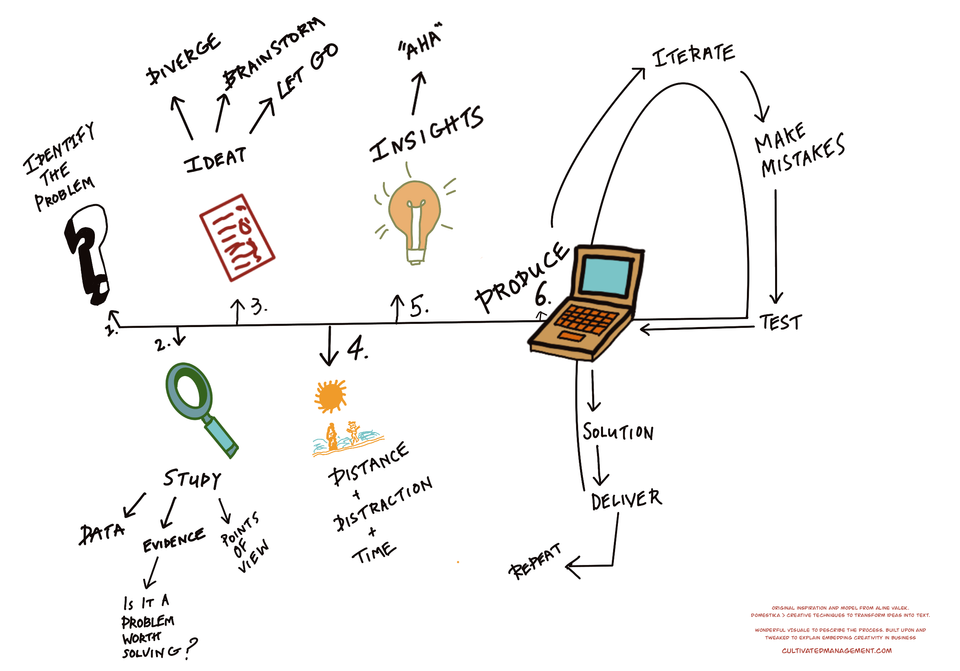 IDENTIFY
THE
PROBLEM
1.
2.
STUDY
DATA
EVIDENCE
POINTS
OF
VIEW
IS IT A
PROBLEM
WORTH
SOLVING?
DIVERGE
BRAINSTORM
LET GO
IDEAT
3.
4.
DISTANCE
+
DISTRACTION
+
TIME
"AHA"
INSIGHTS
5.
PRODUCE
6.
ITERATE
MAKE
MISTAKES
TEST
SOLUTION
DELIVER
REPEAT
ORIGINAL INSPIRATION AND MODEL FROM ALINE VALEK.
DOMESTIKA > CREATIVE TECHNIQUES TO TRANSFORM IDEAS INTO TEXT.
WONDERFUL VISUALE TO DESCRIBE THE PROCESS. BUILT UPON AND
TWEAKED TO EXPLAIN EMBEDDING CREATIVITY IN BUSINESS
CULTIVATEDMANAGEMENT.COM